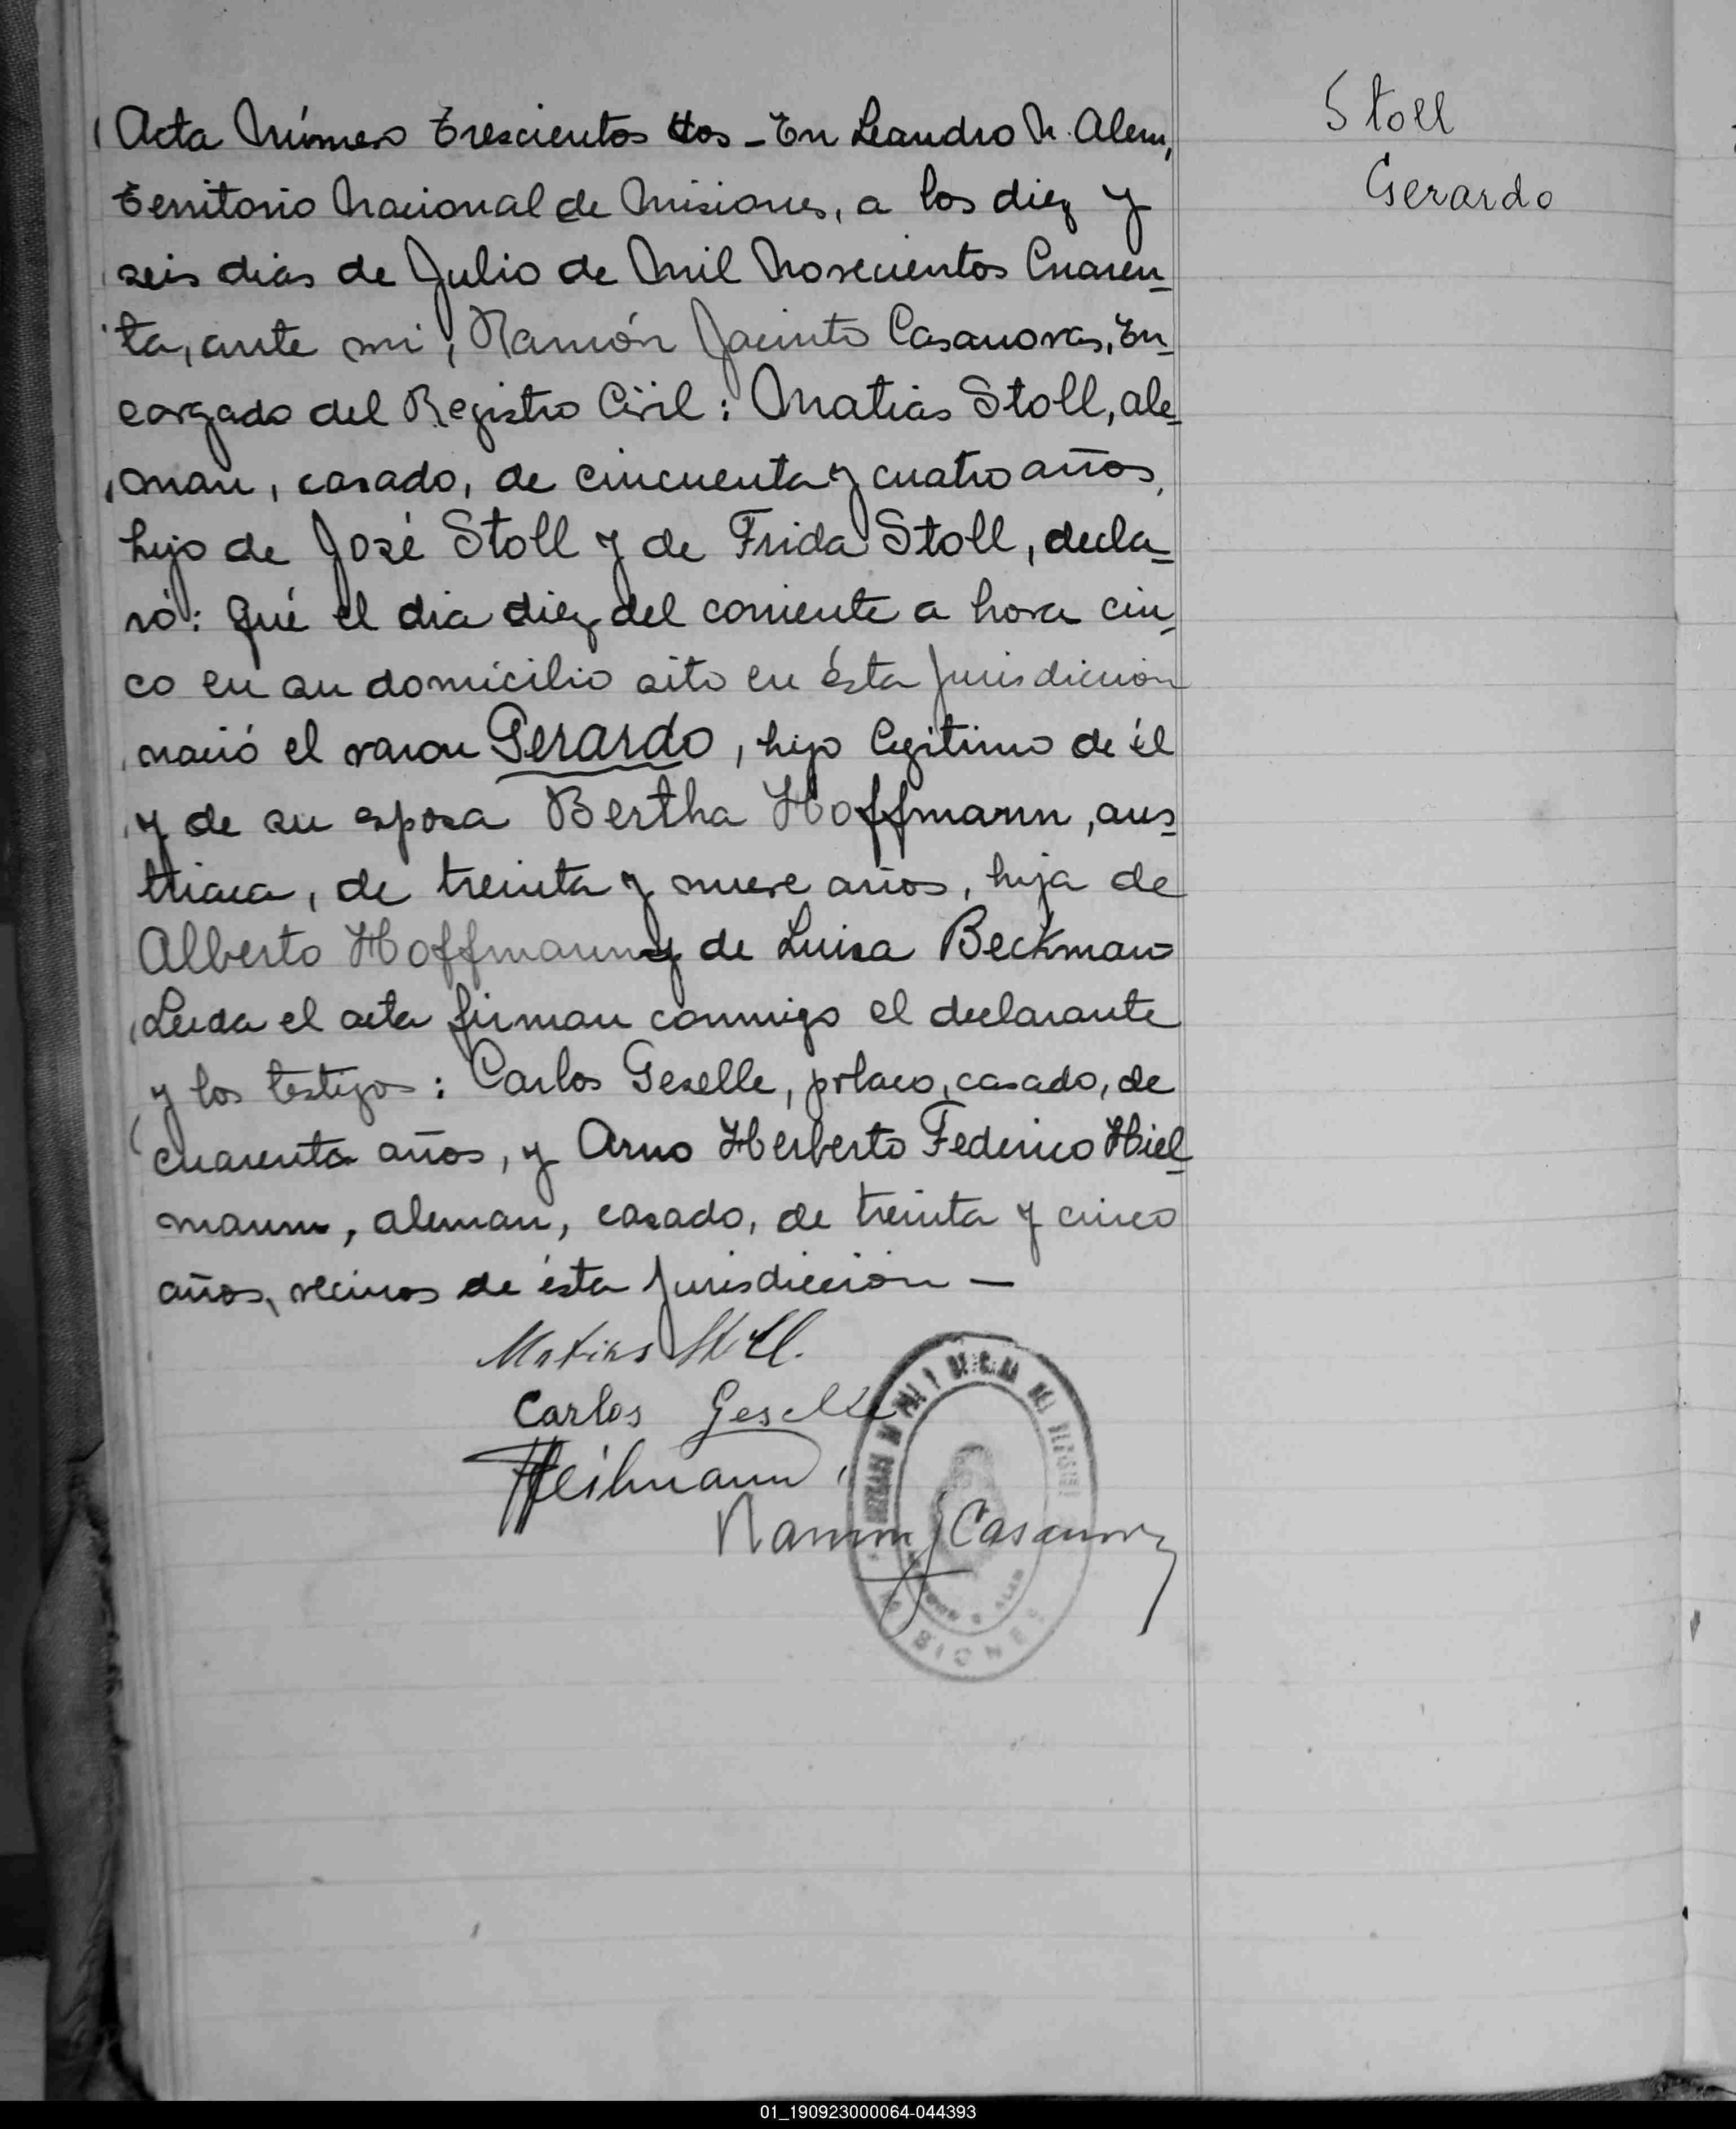 Acta Número Trescientos dos - En Leandro N. Alem,
Territorio Nacional de Misiones, a los diez y
seis dias de Julio de Mil Novecientos Cuaren-
ta, ante mi, Ramón Jacinto Casanovas, En-
cargado del Registro Civil: Matias Stoll, ale-
man, casado, de cincuenta y cuatro años,
hijo de José Stoll y de Frida Stoll, decla-
ró: Qué el dia diez del corriente a hora cin-
co en su domicilio sito en ésta Jurisdiccion
nació el varon Gerardo, hijo legitimo de él
y de su esposa Bertha Hoffmann, aus-
triaca, de treinta y nueve años, hija de
Alberto Hoffmann y de Luisa Beckman=
Leida el acta firman conmigo el declarante
y los testigos: Carlos Geselle, polaco, casado, de
cuarenta años, y Arno Herberto Federico Hiel-
mann, aleman, casado, de treinta y cinco
años, vecinos de ésta Jurisdiccion —
Matias Stoll.
Carlos Geselle
Heilmann
Ramón J Casanovas
MISIONES
Stoll
Gerardo
01_190923000064-044393